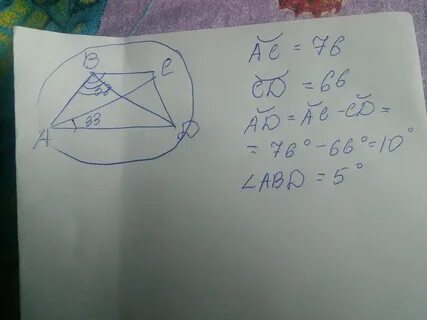 B
C
A
33
D
ĂC = 76
C͝D = 66
ĂD = ĂC - C͝D =
= 76° - 66° = 10°
∠ABD = 5°